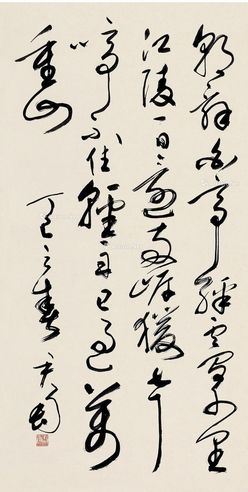 朝辭白帝彩雲間千里
江陵一日還兩岸猿聲
啼不住輕舟已過萬
重山
丁巳之春